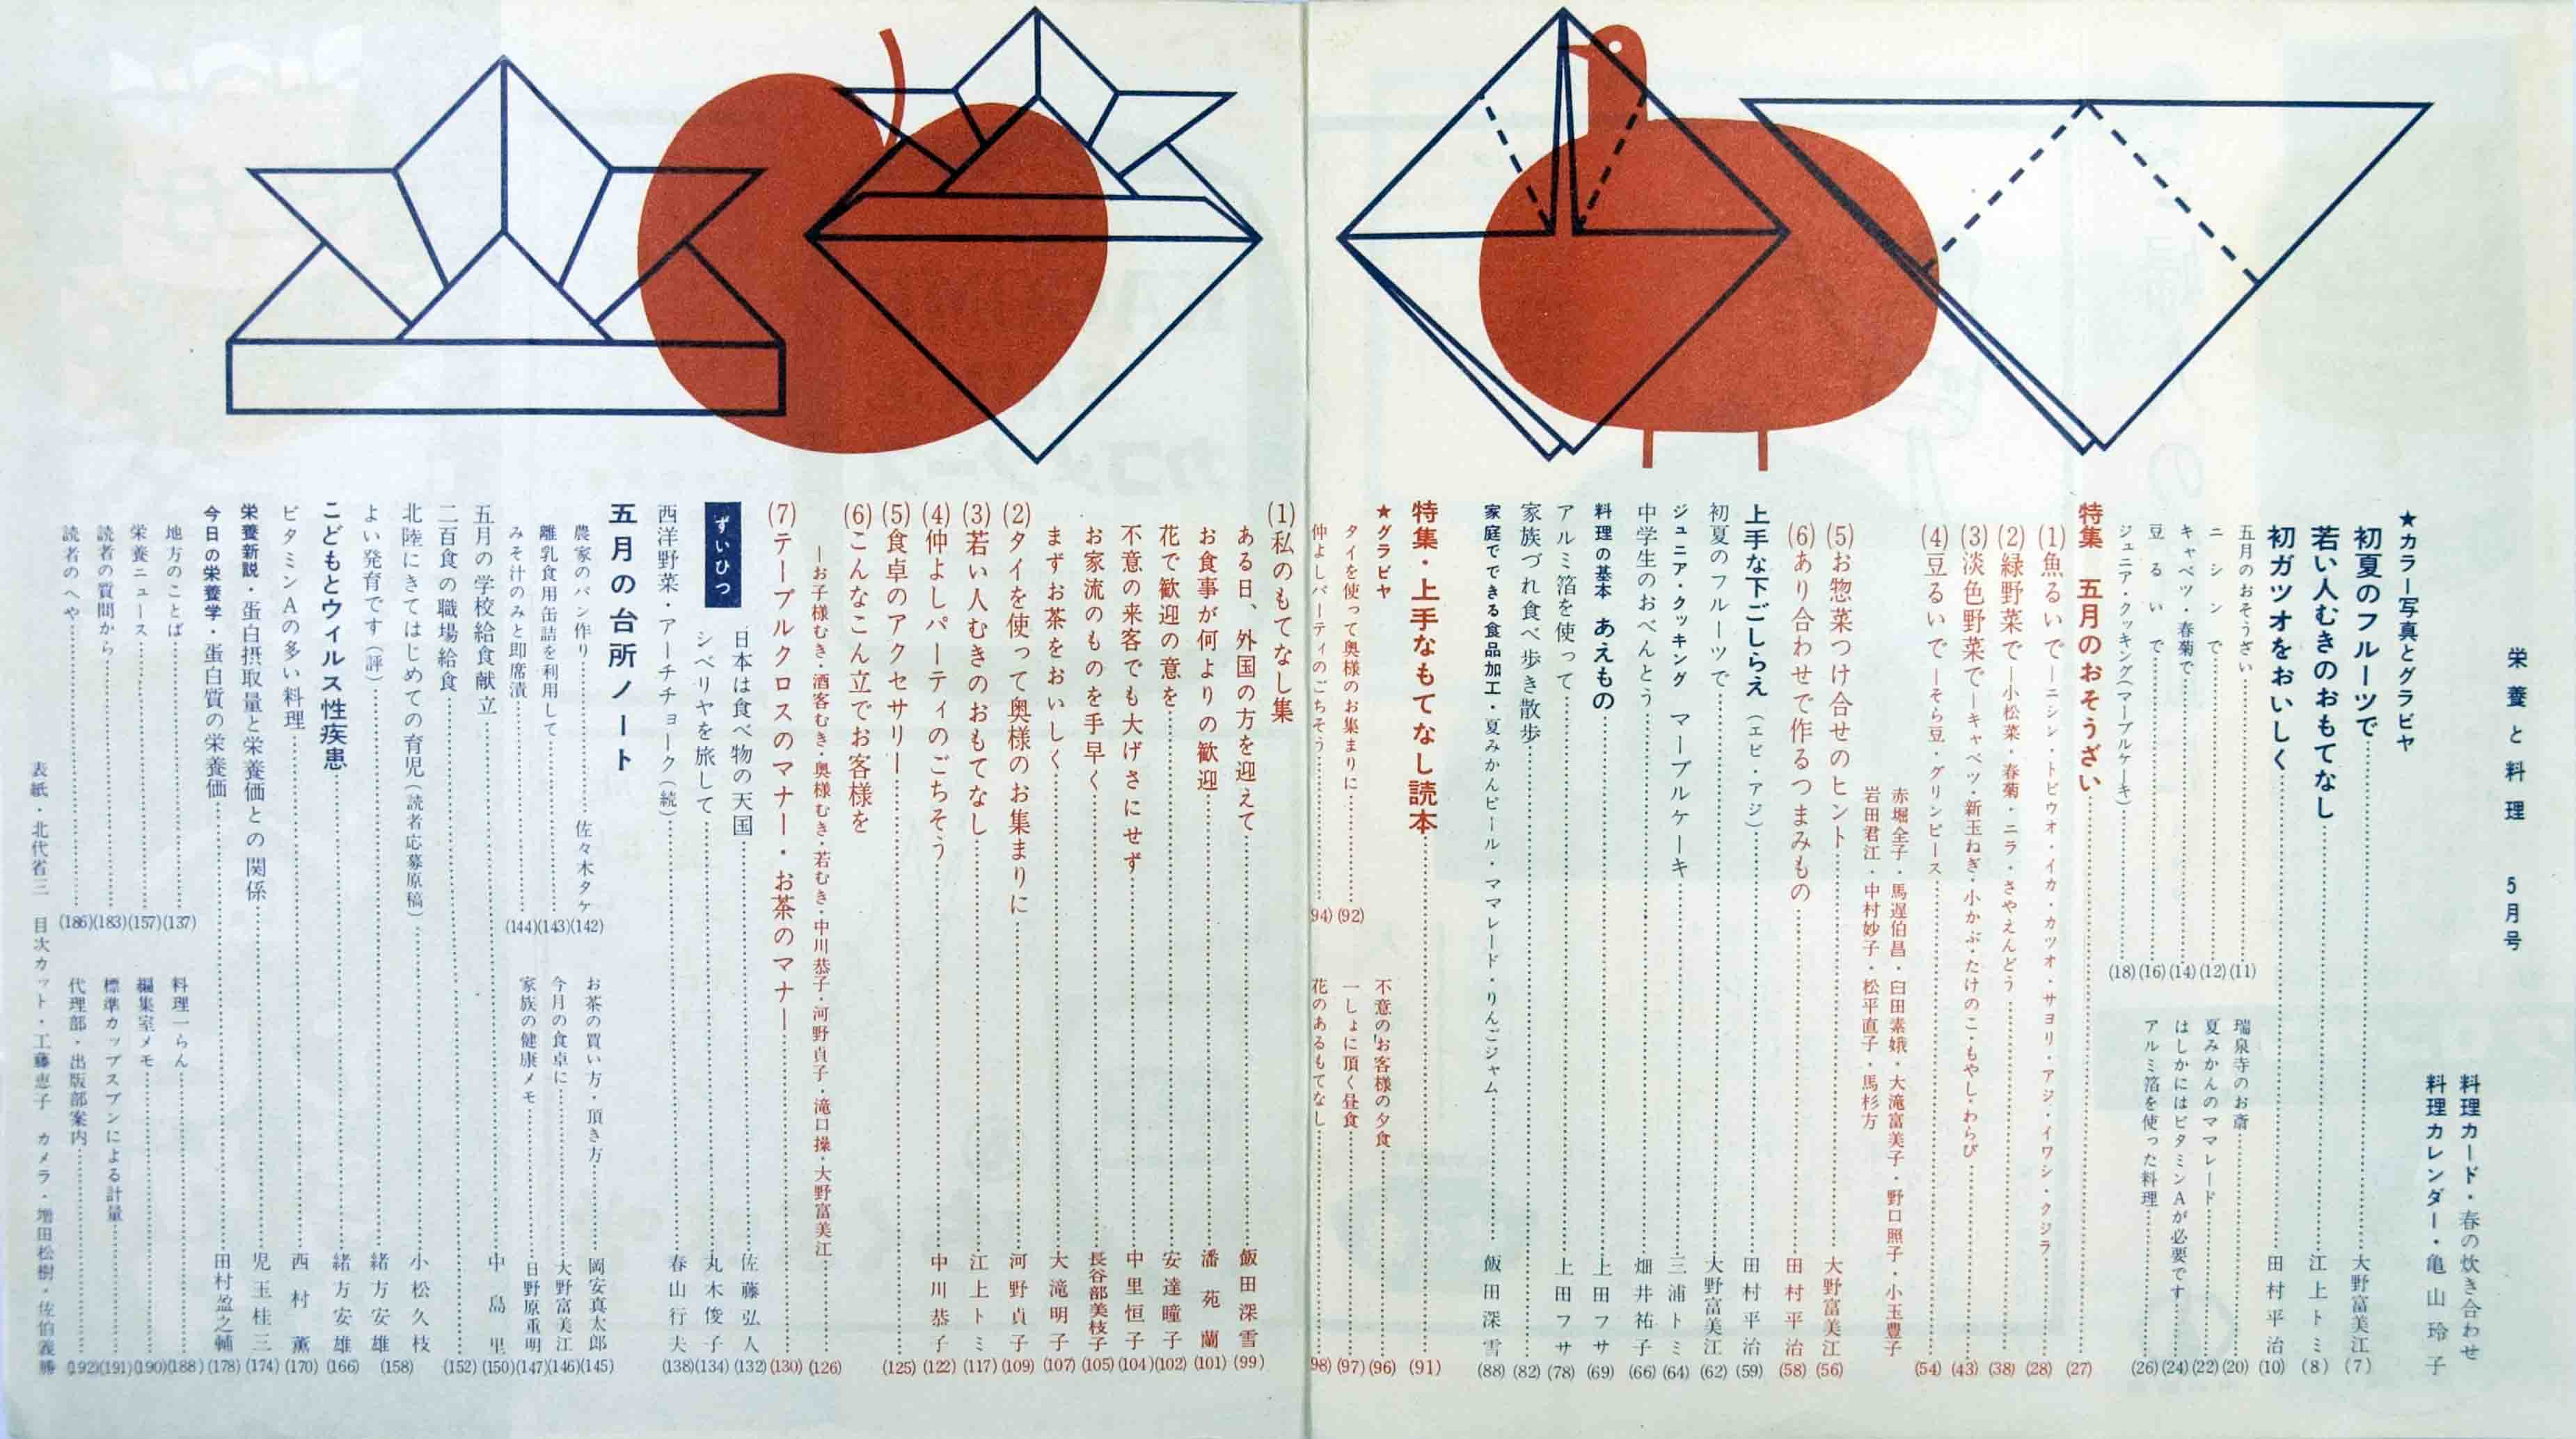 栄養と料理 5月号
料理カード・春の炊き合わせ
料理カレンダー・亀山玲子
★カラー写真とグラビヤ
初夏のフルーツで 大野富美江 (7)
若い人むきのおもてなし 江上トミ (8)
初ガツオをおいしく 田村平治 (10)
五月のおそうざい (11)
ニシンで (12)
キャベツ・春菊で (14)
豆るいで (16)
ジュニア・クッキング(マーブルケーキ) (18)
瑞泉寺のお斎 (20)
夏みかんのママレード (22)
はしかにはビタミンAが必要です (24)
アルミ箔を使った料理 (26)
特集 五月のおそうざい (27)
(1)魚るいで―ニシン・トビウオ・イカ・カツオ・サヨリ・アジ・イワシ・クジラ (28)
(2)緑野菜で―小松菜・春菊・ニラ・さやえんどう (38)
(3)淡色野菜で―キャベツ・新玉ねぎ・小かぶ・たけのこ・もやし・わらび (43)
(4)豆るいで―そら豆・グリンピース (54)
赤堀全子・馬遅伯昌・臼田素娥・大滝富美子・野口照子・小玉豊子
岩田君江・中村妙子・松平直子・馬杉方
(5)お惣菜つけ合せのヒント 大野富美江 (56)
(6)あり合わせで作るつまみもの 田村平治 (58)
上手な下ごしらえ(エビ・アジ) 田村平治 (59)
初夏のフルーツで 大野富美江 (62)
ジュニア・クッキング マーブルケーキ 三浦トミ (64)
中学生のおべんとう 畑井祐子 (66)
料理の基本 あえもの 上田フサ (69)
アルミ箔を使って 上田フサ (78)
家族づれ食べ歩き散歩 (82)
家庭でできる食品加工・夏みかんピール・ママレード・りんごジャム 飯田深雪 (88)
特集・上手なもてなし読本 (91)
★グラビヤ
タイを使って奥様のお集まりに (92)
仲よしパーティのごちそう 94)
不意のお客様の夕食 (96)
一しょに頂く昼食 (97)
花のあるもてなし 98)
(1)私のもてなし集
ある日、外国の方を迎えて 飯田深雪 (99)
お食事が何よりの歓迎 潘苑蘭 (101)
花で歓迎の意を 安達瞳子 (102)
不意の来客でも大げさにせず 中里恒子 (104)
お家流のものを手早く 長谷部美枝子 (105)
まずお茶をおいしく 大滝明子 (107)
(2)タイを使って奥様のお集まりに 河野貞子 (109)
(3)若い人むきのおもてなし 江上トミ (117)
(4)仲よしパーティのごちそう 中川恭子 (122)
(5)食卓のアクセサリー (125)
(6)こんなこん立でお客様を
―お子様むき・酒客むき・奥様むき・若むき・中川恭子・河野貞子・滝口操・大野富美江 (126)
(7)テーブルクロスのマナー・お茶のマナー (130)
ずいひつ
日本は食べ物の天国 佐藤弘人 (132)
シベリヤを旅して 丸木俊子 (134)
西洋野菜・アーチチョーク(続) 春山行夫 (138)
五月の台所ノート
農家のパン作り 佐々木タケ (142)
離乳食用缶詰を利用して (143)
みそ汁のみと即席漬 (144)
お茶の買い方・頂き方 岡安真太郎 (145)
今月の食卓に 大野富美江 (146)
家族の健康メモ 日野原重明 (147)
五月の学校給食献立 中島里 (150)
二百食の職場給食 (152)
北陸にきてはじめての育児(読者応募原稿) 小松久枝 (158)
よい発育です(評) 緒方安雄
こどもとウイルス性疾患 緒方安雄 (166)
ビタミンAの多い料理 西村薫 (170)
栄養新説・蛋白摂取量と栄養価との関係 児玉桂三 (174)
今日の栄養学・蛋白質の栄養価 田村盈之輔 (178)
地方のことば (137)
栄養ニュース (157)
読者の質問から (183)
読者のへや (186)
料理一らん (188)
編集室メモ (190)
標準カップスプンによる計量 (191)
代理部・出版部案内 (192)
表紙・北代省三 目次カット・工藤恵子 カメラ・増田松樹・佐伯義勝